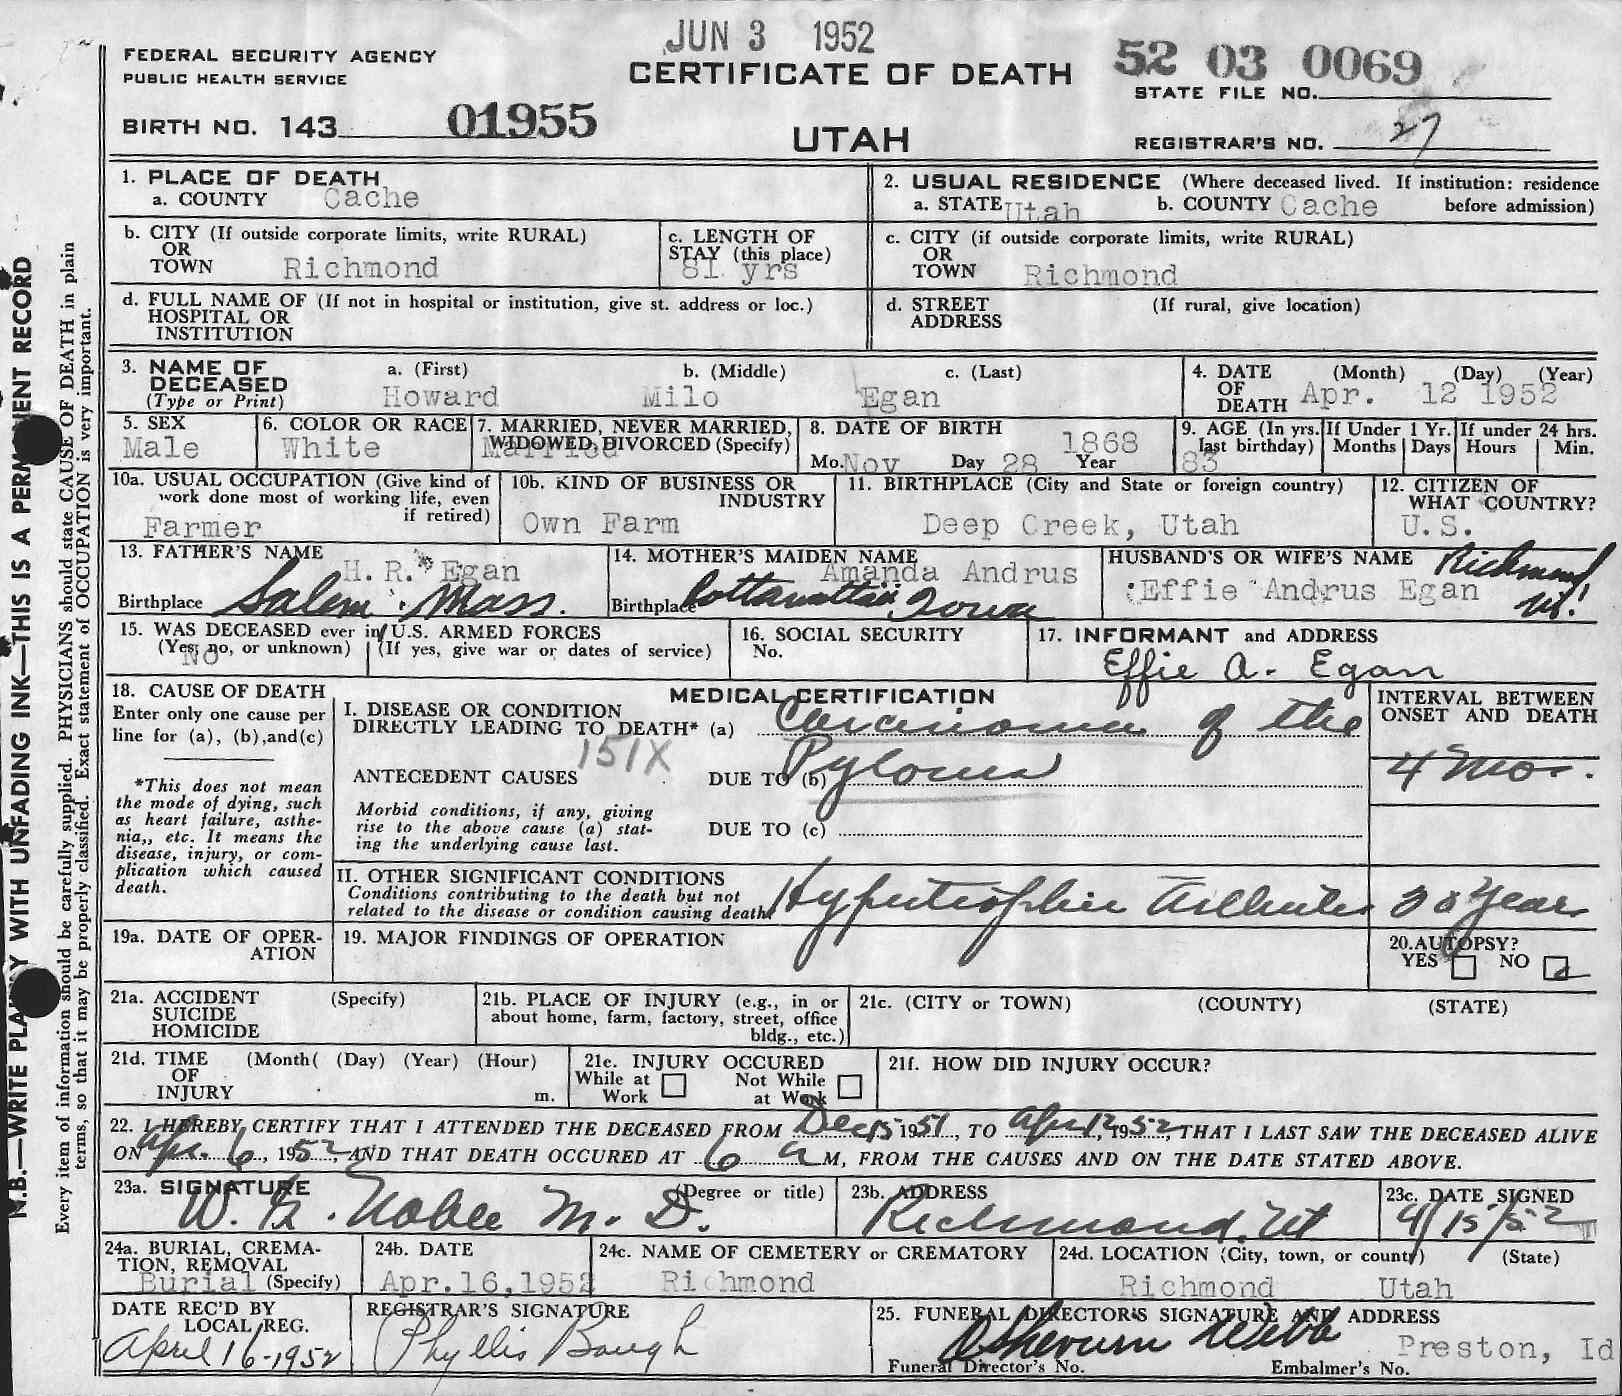 JUN 3 1952
FEDERAL SECURITY AGENCY
PUBLIC HEALTH SERVICE
CERTIFICATE OF DEATH
52 03 0069
STATE FILE NO.
BIRTH NO. 143 01955
UTAH
REGISTRAR'S NO. 27
N.B.—WRITE PLAINLY WITH UNFADING INK—THIS IS A PERMANENT RECORD
Every item of information should be carefully supplied. PHYSICIANS should state CAUSE OF DEATH in plain
terms, so that it may be properly classified. Exact statement of OCCUPATION is very important.
1. PLACE OF DEATH
a. COUNTY Cache
2. USUAL RESIDENCE (Where deceased lived. If institution: residence
a. STATE Utah b. COUNTY Cache before admission)
b. CITY (If outside corporate limits, write RURAL)
OR
TOWN Richmond
c. LENGTH OF
STAY (this place)
81 yrs
c. CITY (if outside corporate limits, write RURAL)
OR
TOWN Richmond
d. FULL NAME OF (If not in hospital or institution, give st. address or loc.)
HOSPITAL OR
INSTITUTION
d. STREET (If rural, give location)
ADDRESS
3. NAME OF DECEASED
(Type or Print)
a. (First) b. (Middle) c. (Last)
Howard Milo Egan
4. DATE (Month) (Day) (Year)
OF
DEATH Apr. 12 1952
5. SEX
Male
6. COLOR OR RACE
White
7. MARRIED, NEVER MARRIED,
WIDOWED, DIVORCED (Specify)
Married
8. DATE OF BIRTH 1868
Mo. Nov Day 28 Year
9. AGE (In yrs. last birthday)
83
If Under 1 Yr.
Months Days
If under 24 hrs.
Hours Min.
10a. USUAL OCCUPATION (Give kind of
work done most of working life, even
if retired)
Farmer
10b. KIND OF BUSINESS OR
INDUSTRY
Own Farm
11. BIRTHPLACE (City and State or foreign country)
Deep Creek, Utah
12. CITIZEN OF
WHAT COUNTRY?
U.S.
13. FATHER'S NAME
H. R. Egan
Birthplace Salem, Mass.
14. MOTHER'S MAIDEN NAME
Amanda Andrus
Birthplace Pottawattaii, Iowa
HUSBAND'S OR WIFE'S NAME Richmond
Effie Andrus Egan Ut.
15. WAS DECEASED ever in U.S. ARMED FORCES
(Yes, no, or unknown) (If yes, give war or dates of service)
No
16. SOCIAL SECURITY
No.
17. INFORMANT and ADDRESS
Effie A. Egan
18. CAUSE OF DEATH
Enter only one cause per
line for (a), (b),and(c)
*This does not mean
the mode of dying, such
as heart failure, asthe-
nia,, etc. It means the
disease, injury, or com-
plication which caused
death.
MEDICAL CERTIFICATION
I. DISEASE OR CONDITION
DIRECTLY LEADING TO DEATH* (a) Carcinoma of the
151X
ANTECEDENT CAUSES DUE TO (b) Pylorus
Morbid conditions, if any, giving
rise to the above cause (a) stat-
ing the underlying cause last.
DUE TO (c)
INTERVAL BETWEEN
ONSET AND DEATH
4 Mos.
II. OTHER SIGNIFICANT CONDITIONS
Conditions contributing to the death but not
related to the disease or condition causing death.
Hypertrophic Arthritis 20 Years
19a. DATE OF OPER-
ATION
19. MAJOR FINDINGS OF OPERATION
20.AUTOPSY?
YES NO
21a. ACCIDENT (Specify)
SUICIDE
HOMICIDE
21b. PLACE OF INJURY (e.g., in or
about home, farm, factory, street, office
bldg., etc.)
21c. (CITY or TOWN) (COUNTY) (STATE)
21d. TIME (Month( (Day) (Year) (Hour)
OF
INJURY m.
21e. INJURY OCCURED
While at Work Not While at Work
21f. HOW DID INJURY OCCUR?
22. I HEREBY CERTIFY THAT I ATTENDED THE DECEASED FROM Dec 15 1951, TO Apr 12, 1952, THAT I LAST SAW THE DECEASED ALIVE
ON Apr. 6, 1952, AND THAT DEATH OCCURED AT 6 a M, FROM THE CAUSES AND ON THE DATE STATED ABOVE.
23a. SIGNATURE (Degree or title)
W. R. Noble M. D.
23b. ADDRESS
Richmond, Ut
23c. DATE SIGNED
4/15/52
24a. BURIAL, CREMA-
TION, REMOVAL
Burial (Specify)
24b. DATE
Apr.16,1952
24c. NAME OF CEMETERY or CREMATORY
Richmond
24d. LOCATION (City, town, or county) (State)
Richmond Utah
DATE REC'D BY
LOCAL REG.
April 16-1952
REGISTRAR'S SIGNATURE
Phyllis Baugh
25. FUNERAL DIRECTOR'S SIGNATURE AND ADDRESS
Webb Preston, Id
Funeral Director's No. Embalmer's No.